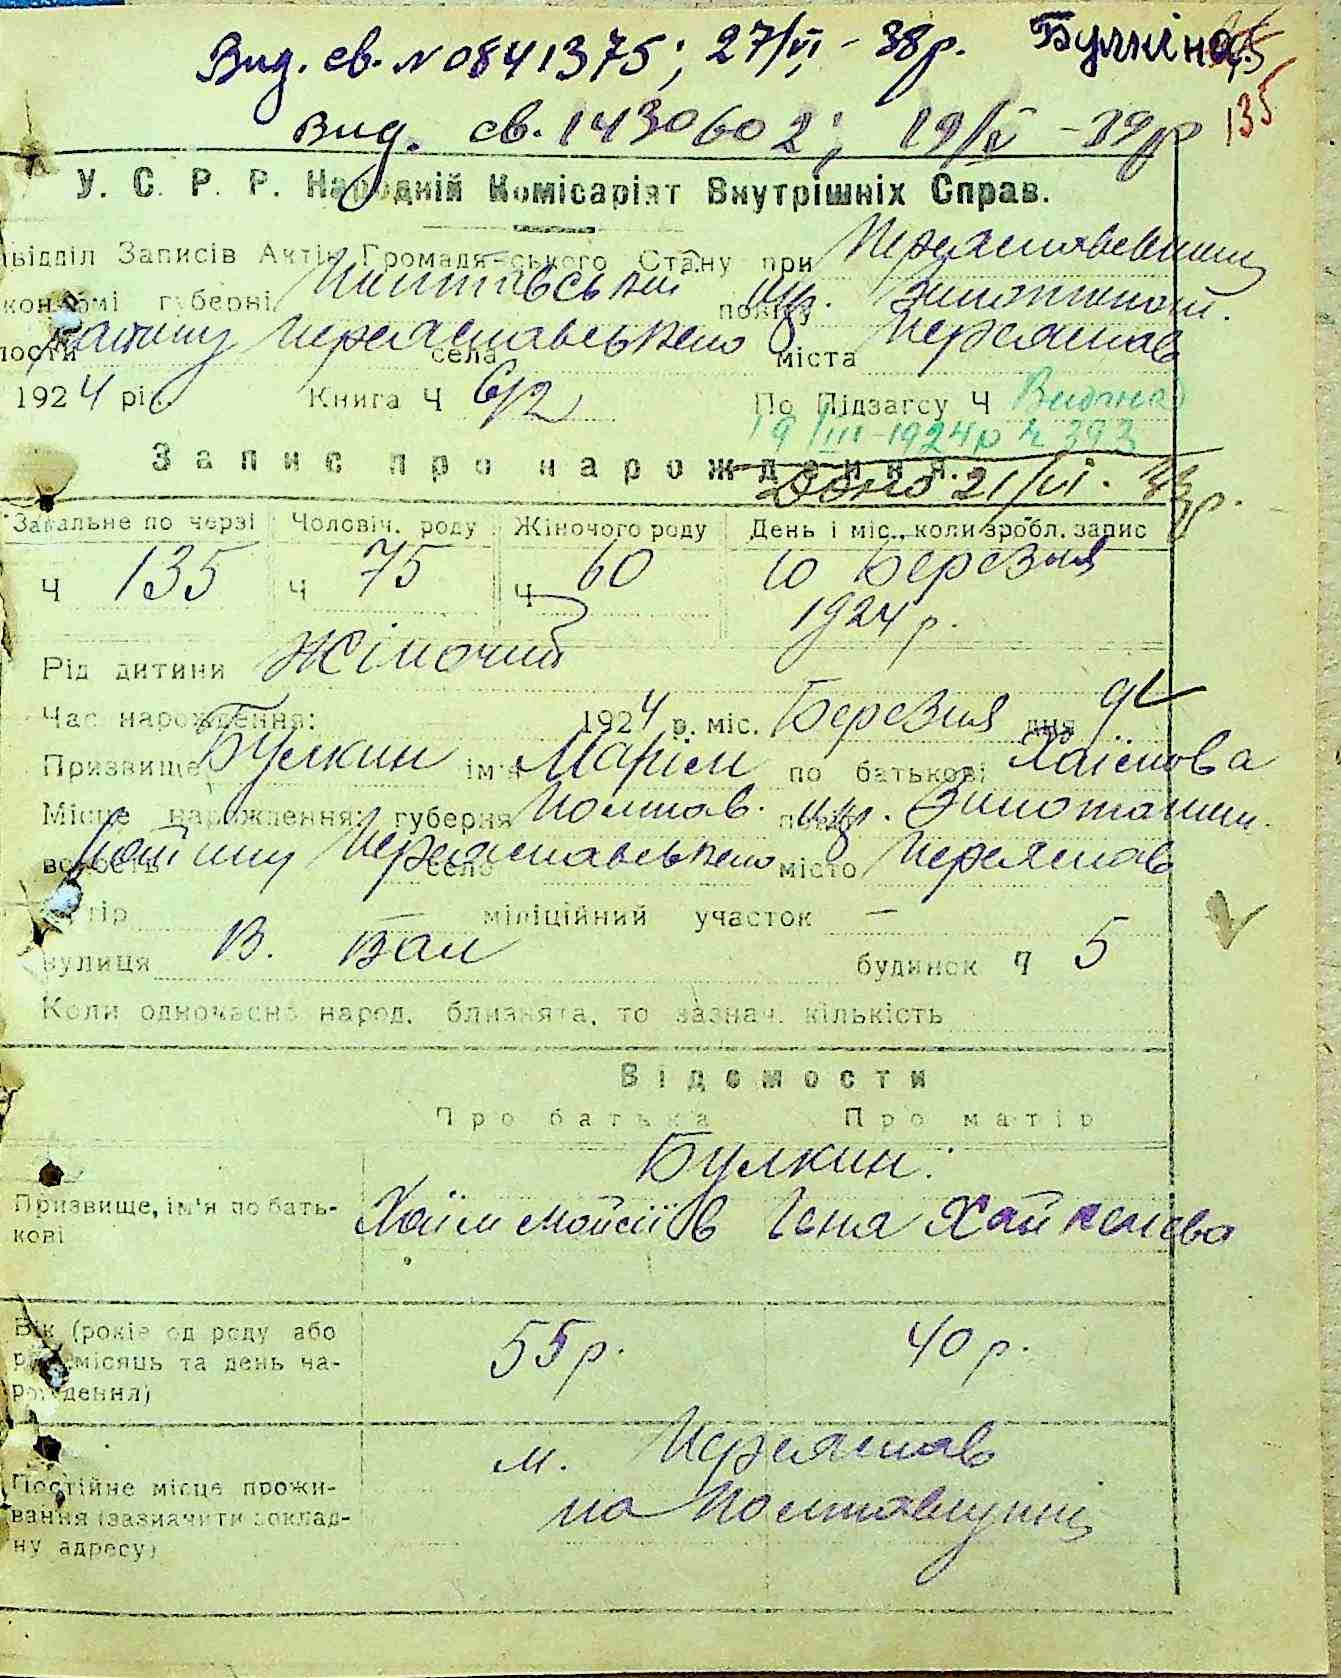 Вид. св. № 0841375; 27/VI - 38р. Булкіна
135
Вид. св. 1430602; 19/V - 39р
У. С. Р. Р. Народній Комісаріят Внутрішніх Справ.
Відділ Записів Актів Громадянського Стану при
губерні Полтавській окр. Золотонош.
Переяславського села міста Переяслав
1924 рік Книга Ч 6/2 По Підзагсу Ч Видана
19/III-1924р ч 393
Запис про народження.
21/VI. 33р.
Загальне по черзі Чоловіч. роду Жіночого роду День і міс., коли зробл. запис
Ч 135 Ч 75 Ч 60 10 Березня
1924 р.
Рід дитини Жіночий
Час нарождення: 1924 р. міс. Березня дня 9
Призвище Булкин ім'я Марієм по батькові Хаїмова
Місце нарождення: губерня Полтав. окр. Золотонош.
волость Району Переяславського село місто Переяслав
хутір — міліційний участок —
вулиця В. Вал будинок ч 5
Коли одночасно народ. близнята, то зазнач. кількість
Відомости
Про батька Про матір
Булкин:
Призвище, ім'я по бать-
кові Хаїм Мойсіїв Геня Хайкелева
Вік (років од роду або
рік, місяць та день на-
рождення) 55 р. 40 р.
м. Переяслав
Постійне місце прожи-
вання (зазначити доклад- на Полтавщині
ну адресу)